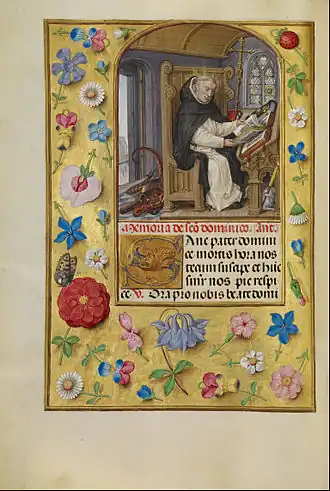 Memoria de scō dominico. Ant.
Ave pater domini
ce mortis hora nos
tecum suscipe et hic
semp nos pie respi
ce. V. Ora pro nobis beate domi